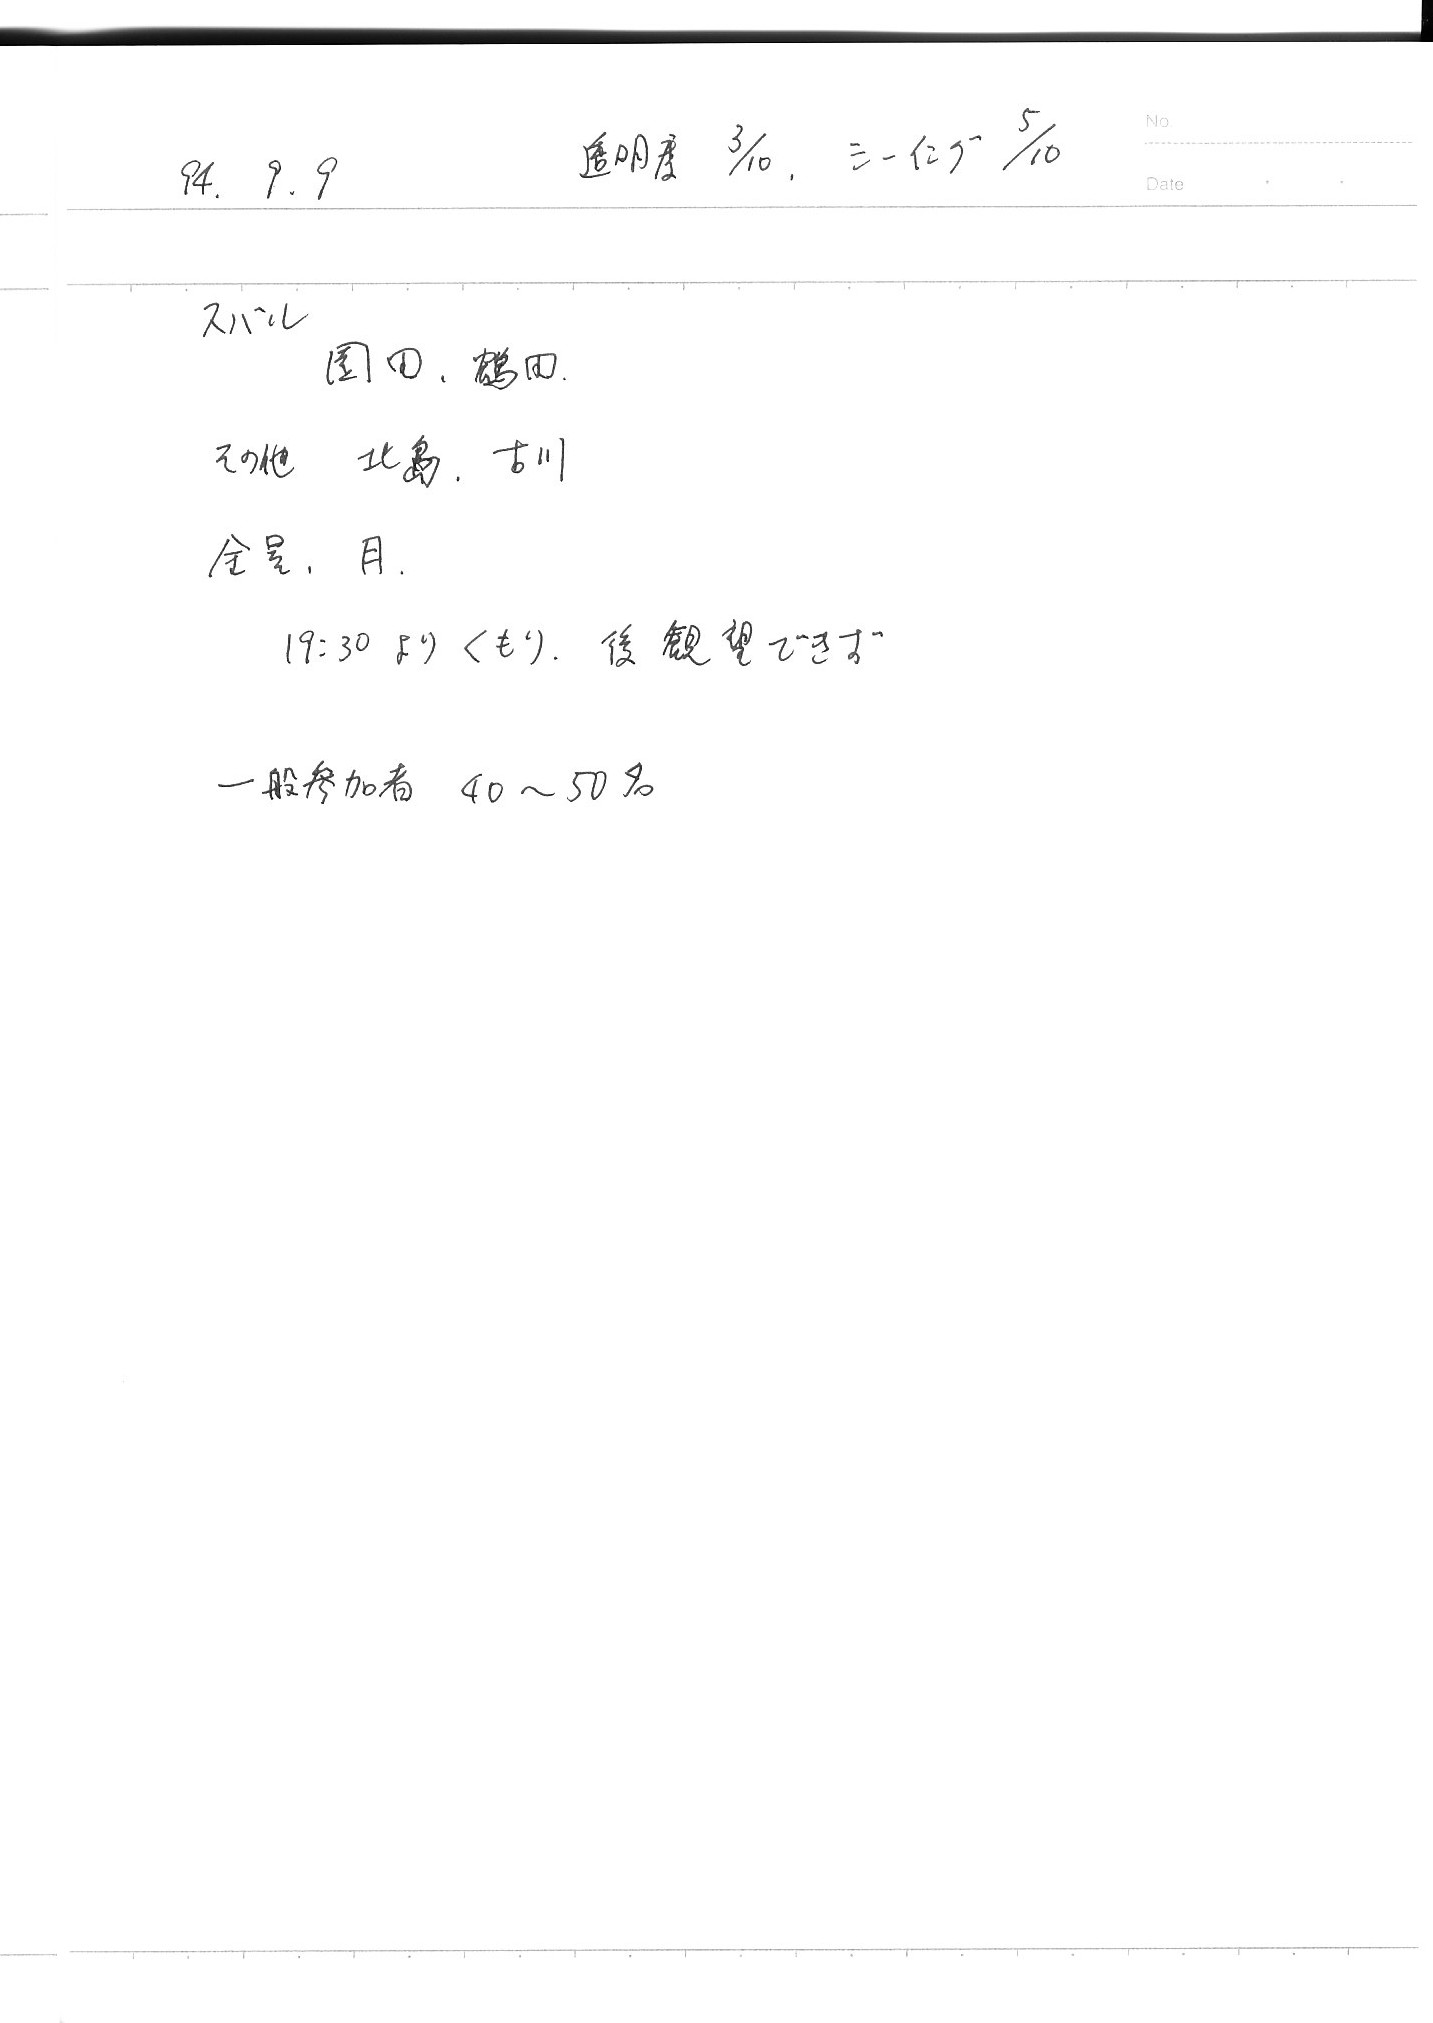 No.
94. 9. 9 透明度 3/10. シーイング 5/10
Date
スバル
園田、鶴田.
その他 北島. 古川
金星、月.
19:30よりくもり. 後観望できず
一般参加者 40～50名